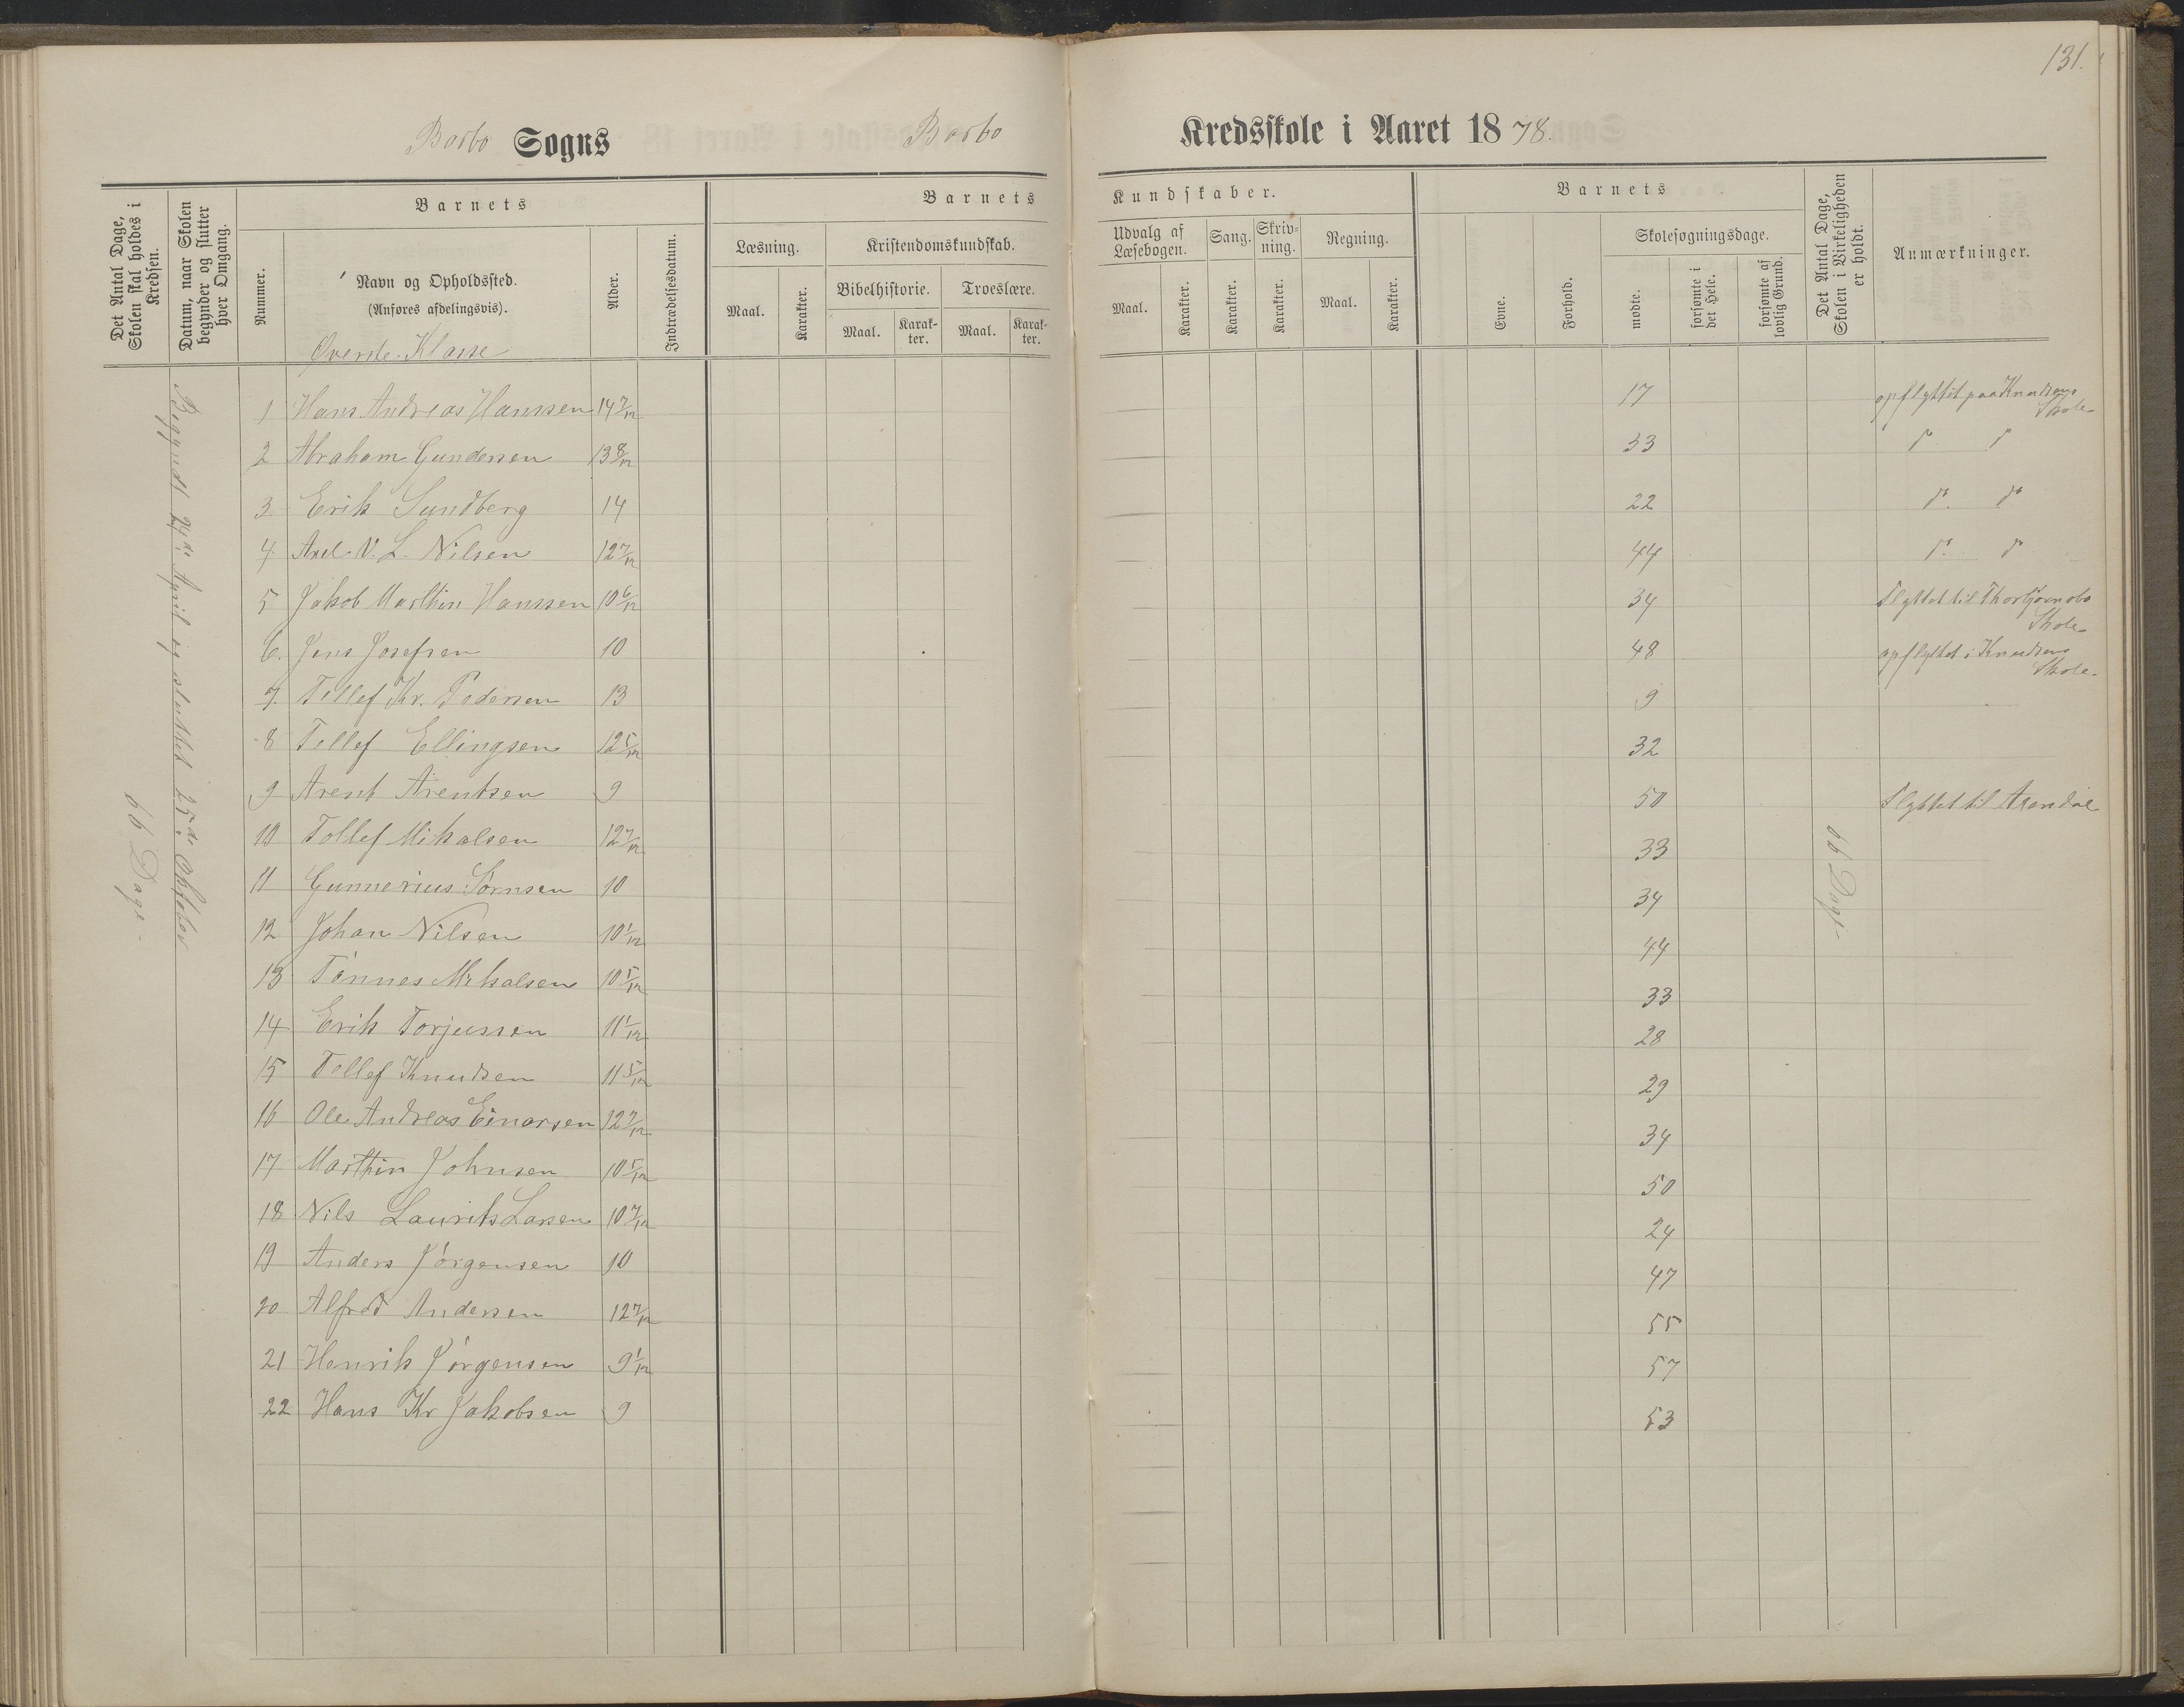 131.
Barbo Sogns Barbo Kredsskole i Aaret 1878.
Det Antal Dage, Skolen skal holdes i Kredsen.
Datum, naar Skolen begynder og slutter hver Omgang.
Barnets
Nummer.
Navn og Opholdssted.
(Anføres afdelingsvis).
Øverste Klasse
Alder.
Indtrædelsesdatum.
Barnets Kundskaber.
Læsning.
Maal.
Karakter.
Kristendomskundskab.
Bibelhistorie.
Maal.
Karak-
ter.
Troeslære.
Maal.
Karak-
ter.
Udvalg af
Læsebogen.
Maal.
Karakter.
Sang.
Karakter.
Skriv-
ning.
Karakter.
Regning.
Maal.
Karakter.
Barnets
Evne.
Forhold.
Skolesøgningsdage.
mødte.
forsømte i
det Hele.
forsømte af
lovlig Grund.
Det Antal Dage,
Skolen i Virkeligheden
er holdt.
Anmærkninger.
Begyndt 24de April og sluttet 25de Oktober
66 Dage.
66 Dage.
1 Hans Andreas Hanssen 14 7/12 17 opflyttet paa Knudsens Skole
2 Abraham Gundersen 13 8/12 33 do do
3. Erik Sundberg 14 22 do. do
4. Axel V. L. Nilsen 12 7/12 44 do. do
5 Jakob Marthin Hanssen 10 6/12 34 flyttet til Thorbjørnsbo Skole
6. Jens Josefsen 10 48 opflyttet i Knudsens Skole
7. Tellef Kr. Pedersen 13 9
8 Tellef Ellingsen 12 5/12 32
9 Arent Arentsen 9 50 flyttet til Arendal
10 Tollef Mikalsen 12 7/12 33
11 Gunnerius Sørnsen 10 34
12 Johan Nilsen 10 1/12 44
13 Tønnes Mikalsen 10 5/12 33
14 Erik Torjussen 11 1/12 28
15 Tellef Knudsen 11 5/12 29
16 Ole Andreas Einarsen 12 7/12 34
17 Marthin Johnsen 10 5/12 50
18 Nils Laurits Larsen 10 7/12 24
19 Anders Jørgensen 10 47
20 Alfred Andersen 12 7/12 55
21 Henrik Jørgensen 9 1/12 57
22 Hans Kr Jakobsen 9 53